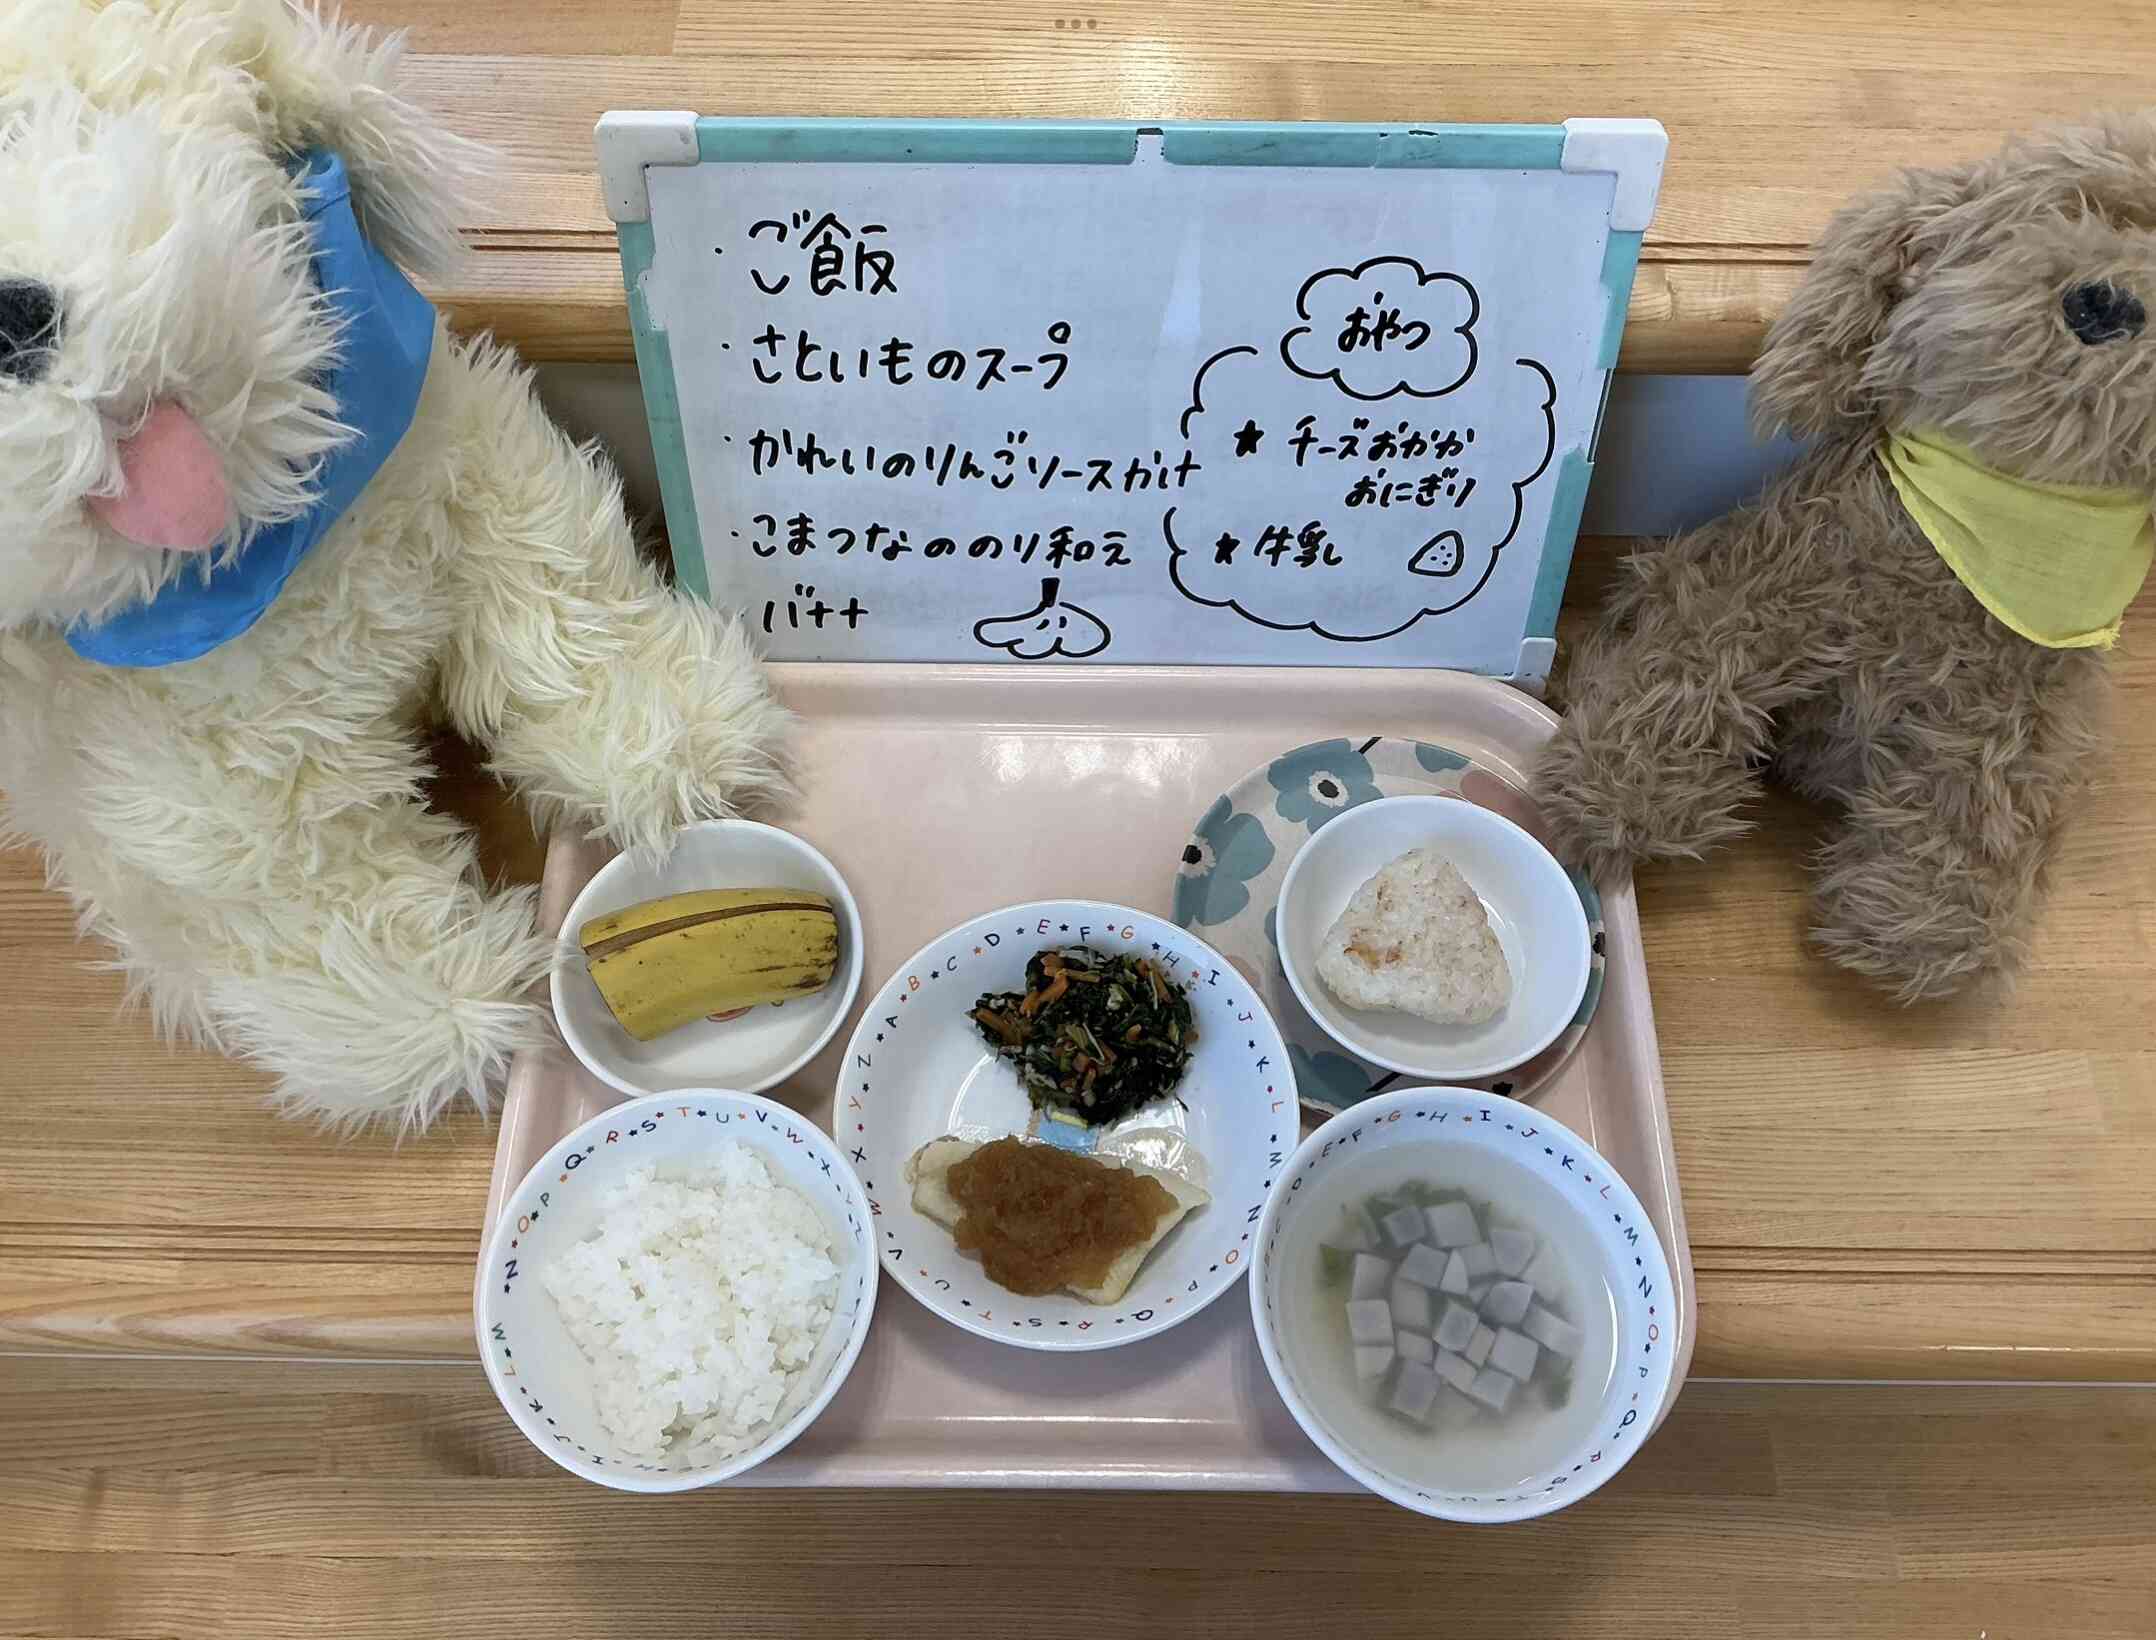 ・ご飯
・さといものスープ
・かれいのりんごソースかけ
・こまつなののり和え
・バナナ
おやつ
★チーズおかか
おにぎり
★牛乳
A★B★C★D★E★F★G★H★I★J★K★L★M★N★O★P★Q★R★S★T★U★V★W★X★Y★Z
H★I★J★K★L★M★N★O★P★Q★R★S★T★U★V★W★X★Y★Z
C★D★E★F★G★H★I★J★K★L★M★N★O★P★Q★R★S★T★U★V